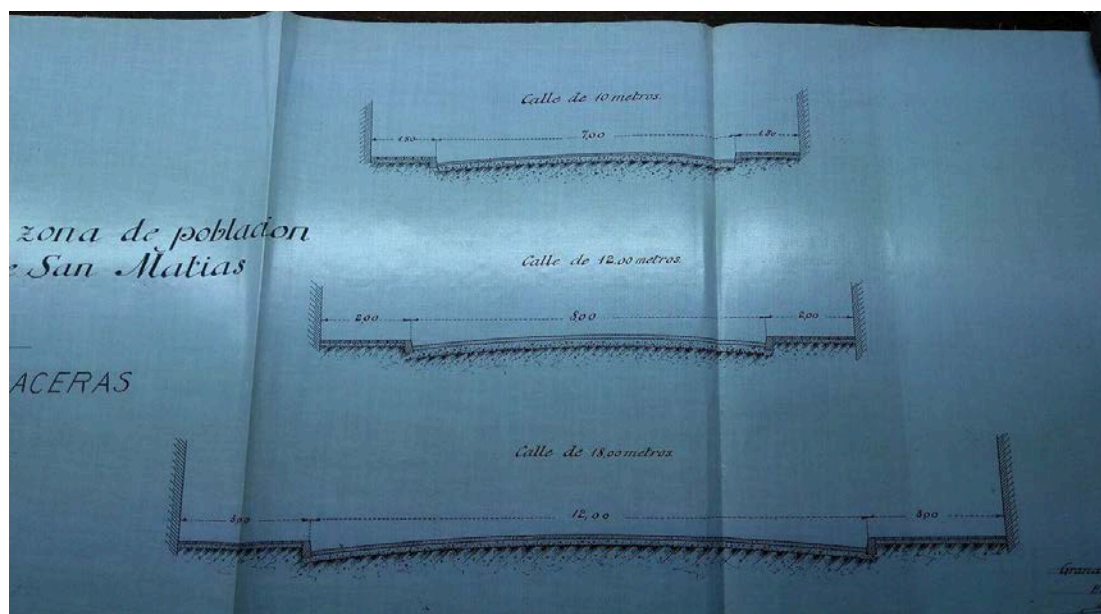 zona de poblacion
San Matias
ACERAS
Calle de 10 metros.
1.50 7,00 1.50
Calle de 12.00 metros.
2,00 8,00 2,00
Calle de 18,00 metros.
3,00 12,00 3,00
Grana